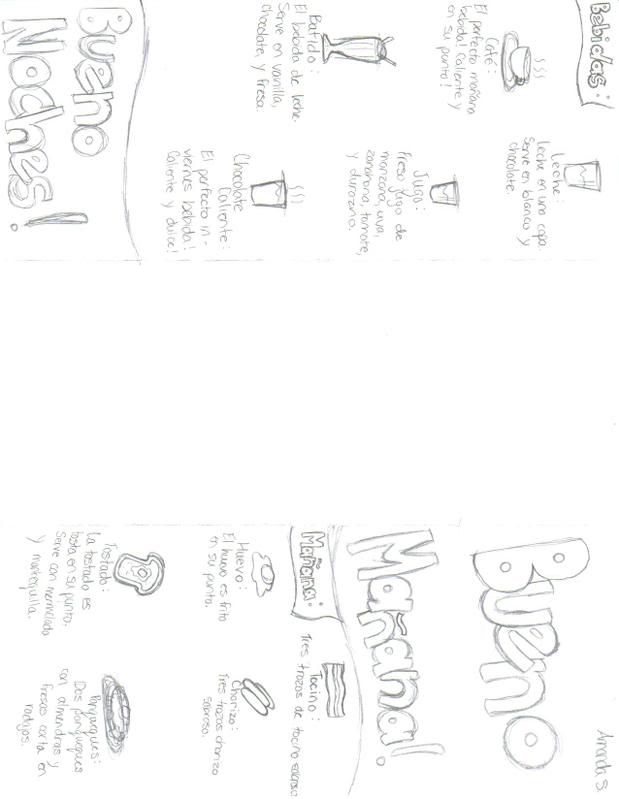 Bebidas:
Café:
El perfecto mañana
bebida! Caliente y
en su punto!
Leche:
Leche en una copa.
Serve en blanco y
chocolate.
Batido:
El bebida de leche.
Serve en vanilla,
chocolate, y fresa.
Jugo:
Freso jugo de
manzana, uva,
zanahoria, tomate,
y durazano.
Chocolate
Caliente:
El perfecto in-
viernes bebida!
Caliente y dulce!
Bueno
Noches!
Amanda S.
Bueno
Mañana!
Mañana:
Tocino:
Tres trozos de tocino
Huevo:
El huevo es frito
en su punto.
Chorizo:
Tres trozos chorizo
sabroso.
Tostado:
La tostado es
tosta en su punto.
Serve con mermelada
y mantequilla.
Panqueques:
Dos panqueques
con almendras y
fresas corta en